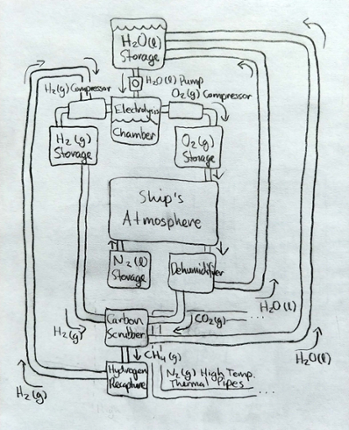 H₂O(l)
Storage
H₂O(l) Pump
H₂(g) Compressor
O₂(g) Compressor
Electrolysis
Chamber
H₂(g)
Storage
O₂(g)
Storage
Ship's
Atmosphere
N₂(l)
Storage
Dehumidifier
H₂O(l)
Carbon
Scrubber
CO₂(g)
H₂(g)
H₂O(l)
CH₄(g)
Hydrogen
Recapture
N₂(g) High Temp.
Thermal Pipes
H₂(g)